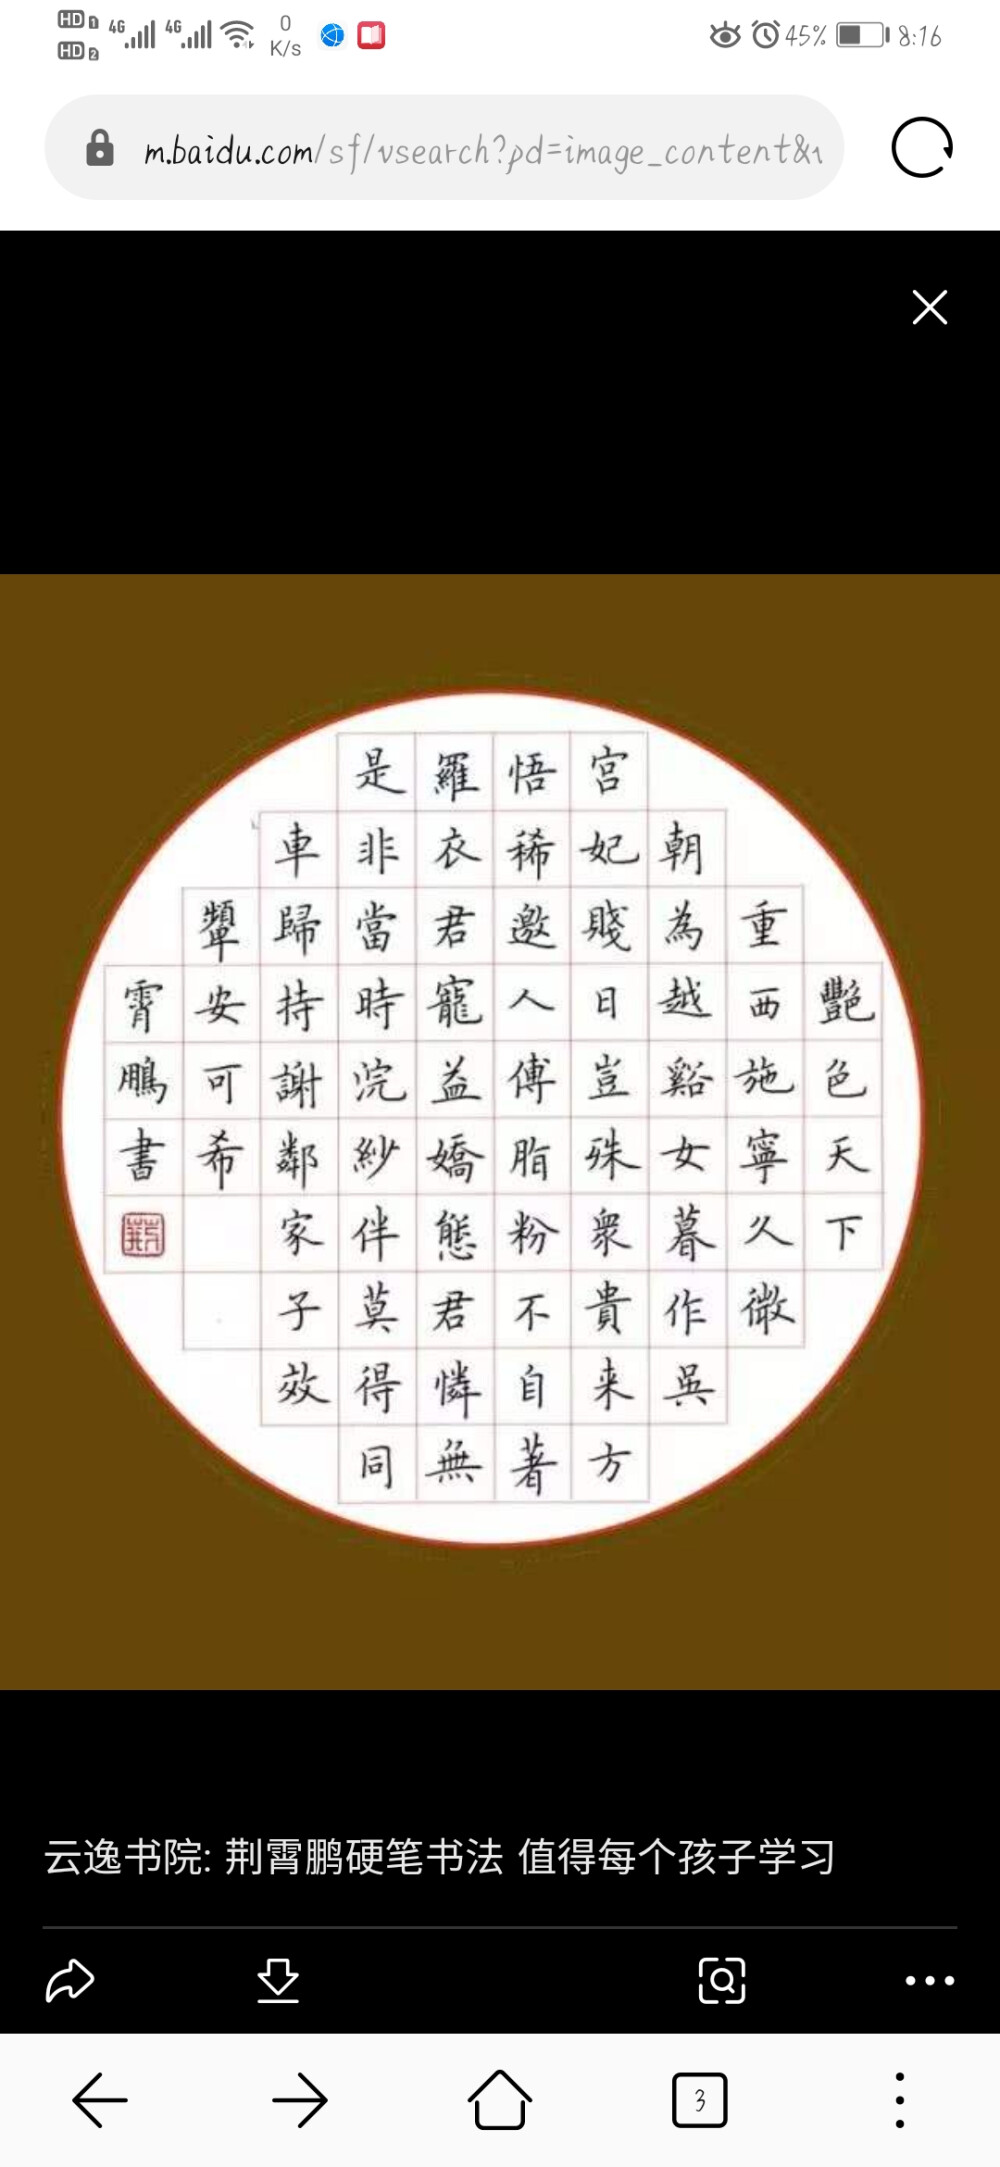 HD 1 4G 4G 0 K/s 45% 8:16
HD 2
m.baidu.com/sf/vsearch?pd=image_content&
艷色天下
重西施寧久微
朝為越谿女暮作吳
宮妃賤日豈殊衆貴来方
悟稀邀人傅脂粉不自著
羅衣君寵益嬌態君憐無
是非當時浣紗伴莫得同
車歸持謝鄰家子效
顰安可希
霄鵬書
云逸书院: 荆霄鹏硬笔书法 值得每个孩子学习
3